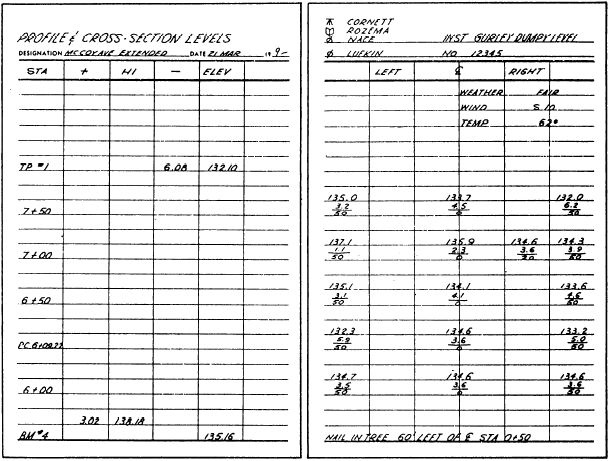 PROFILE & CROSS-SECTION LEVELS
DESIGNATION McCOY AVE EXTENDED DATE 21 MAR 19 9-
STA + HI — ELEV
TP #1 6.08 132.10
7+50
7+00
6+50
PC 6+09.22
6+00
3.02 138.18
BM #4 135.16
CORNETT
ROZEMA
NATE INST GURLEY DUMPY LEVEL
Ø LUFKIN NO 12345
LEFT ℄ RIGHT
WEATHER FAIR
WIND S.10
TEMP 62°
135.0 133.7 132.0
3.2 4.5 6.2
50 0 50
137.1 135.9 134.6 134.3
1.1 2.3 3.6 3.9
50 0 50
135.1 134.1 133.6
3.1 4.1 4.6
50 0 50
132.3 134.6 133.2
5.9 3.6 5.0
50 0 50
134.7 134.6 134.6
3.5 3.6 3.6
50 0 50
NAIL IN TREE 60' LEFT OF ℄ STA 0+50